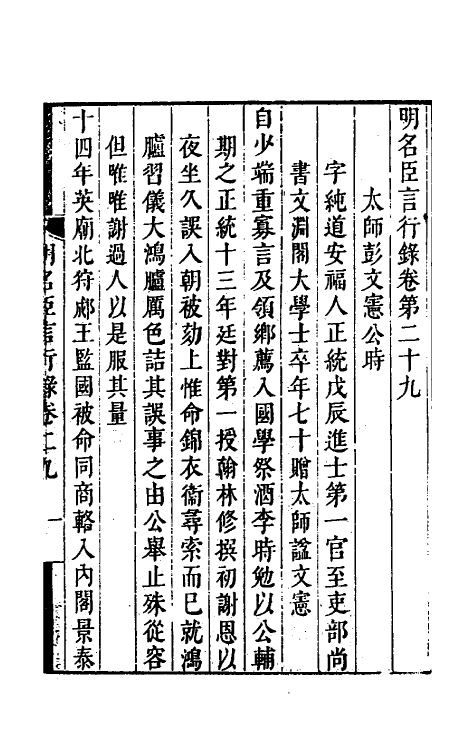 明名臣言行錄卷第二十九
太師彭文憲公時
字純道安福人正統戊辰進士第一官至吏部尚
書文淵閣大學士卒年七十贈太師諡文憲
自少端重寡言及領鄉薦入國學祭酒李時勉以公輔
期之正統十三年廷對第一授翰林修撰初謝恩以
夜坐久誤入朝被劾上惟命錦衣衞尋索而已就鴻
臚習儀大鴻臚厲色詰其誤事之由公舉止殊從容
但唯唯謝過人以是服其量
十四年英廟北狩郕王監國被命同商輅入內閣景泰
明名臣言行錄卷二九
一